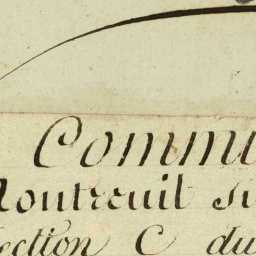 Commu
Montreuil su
Section C du